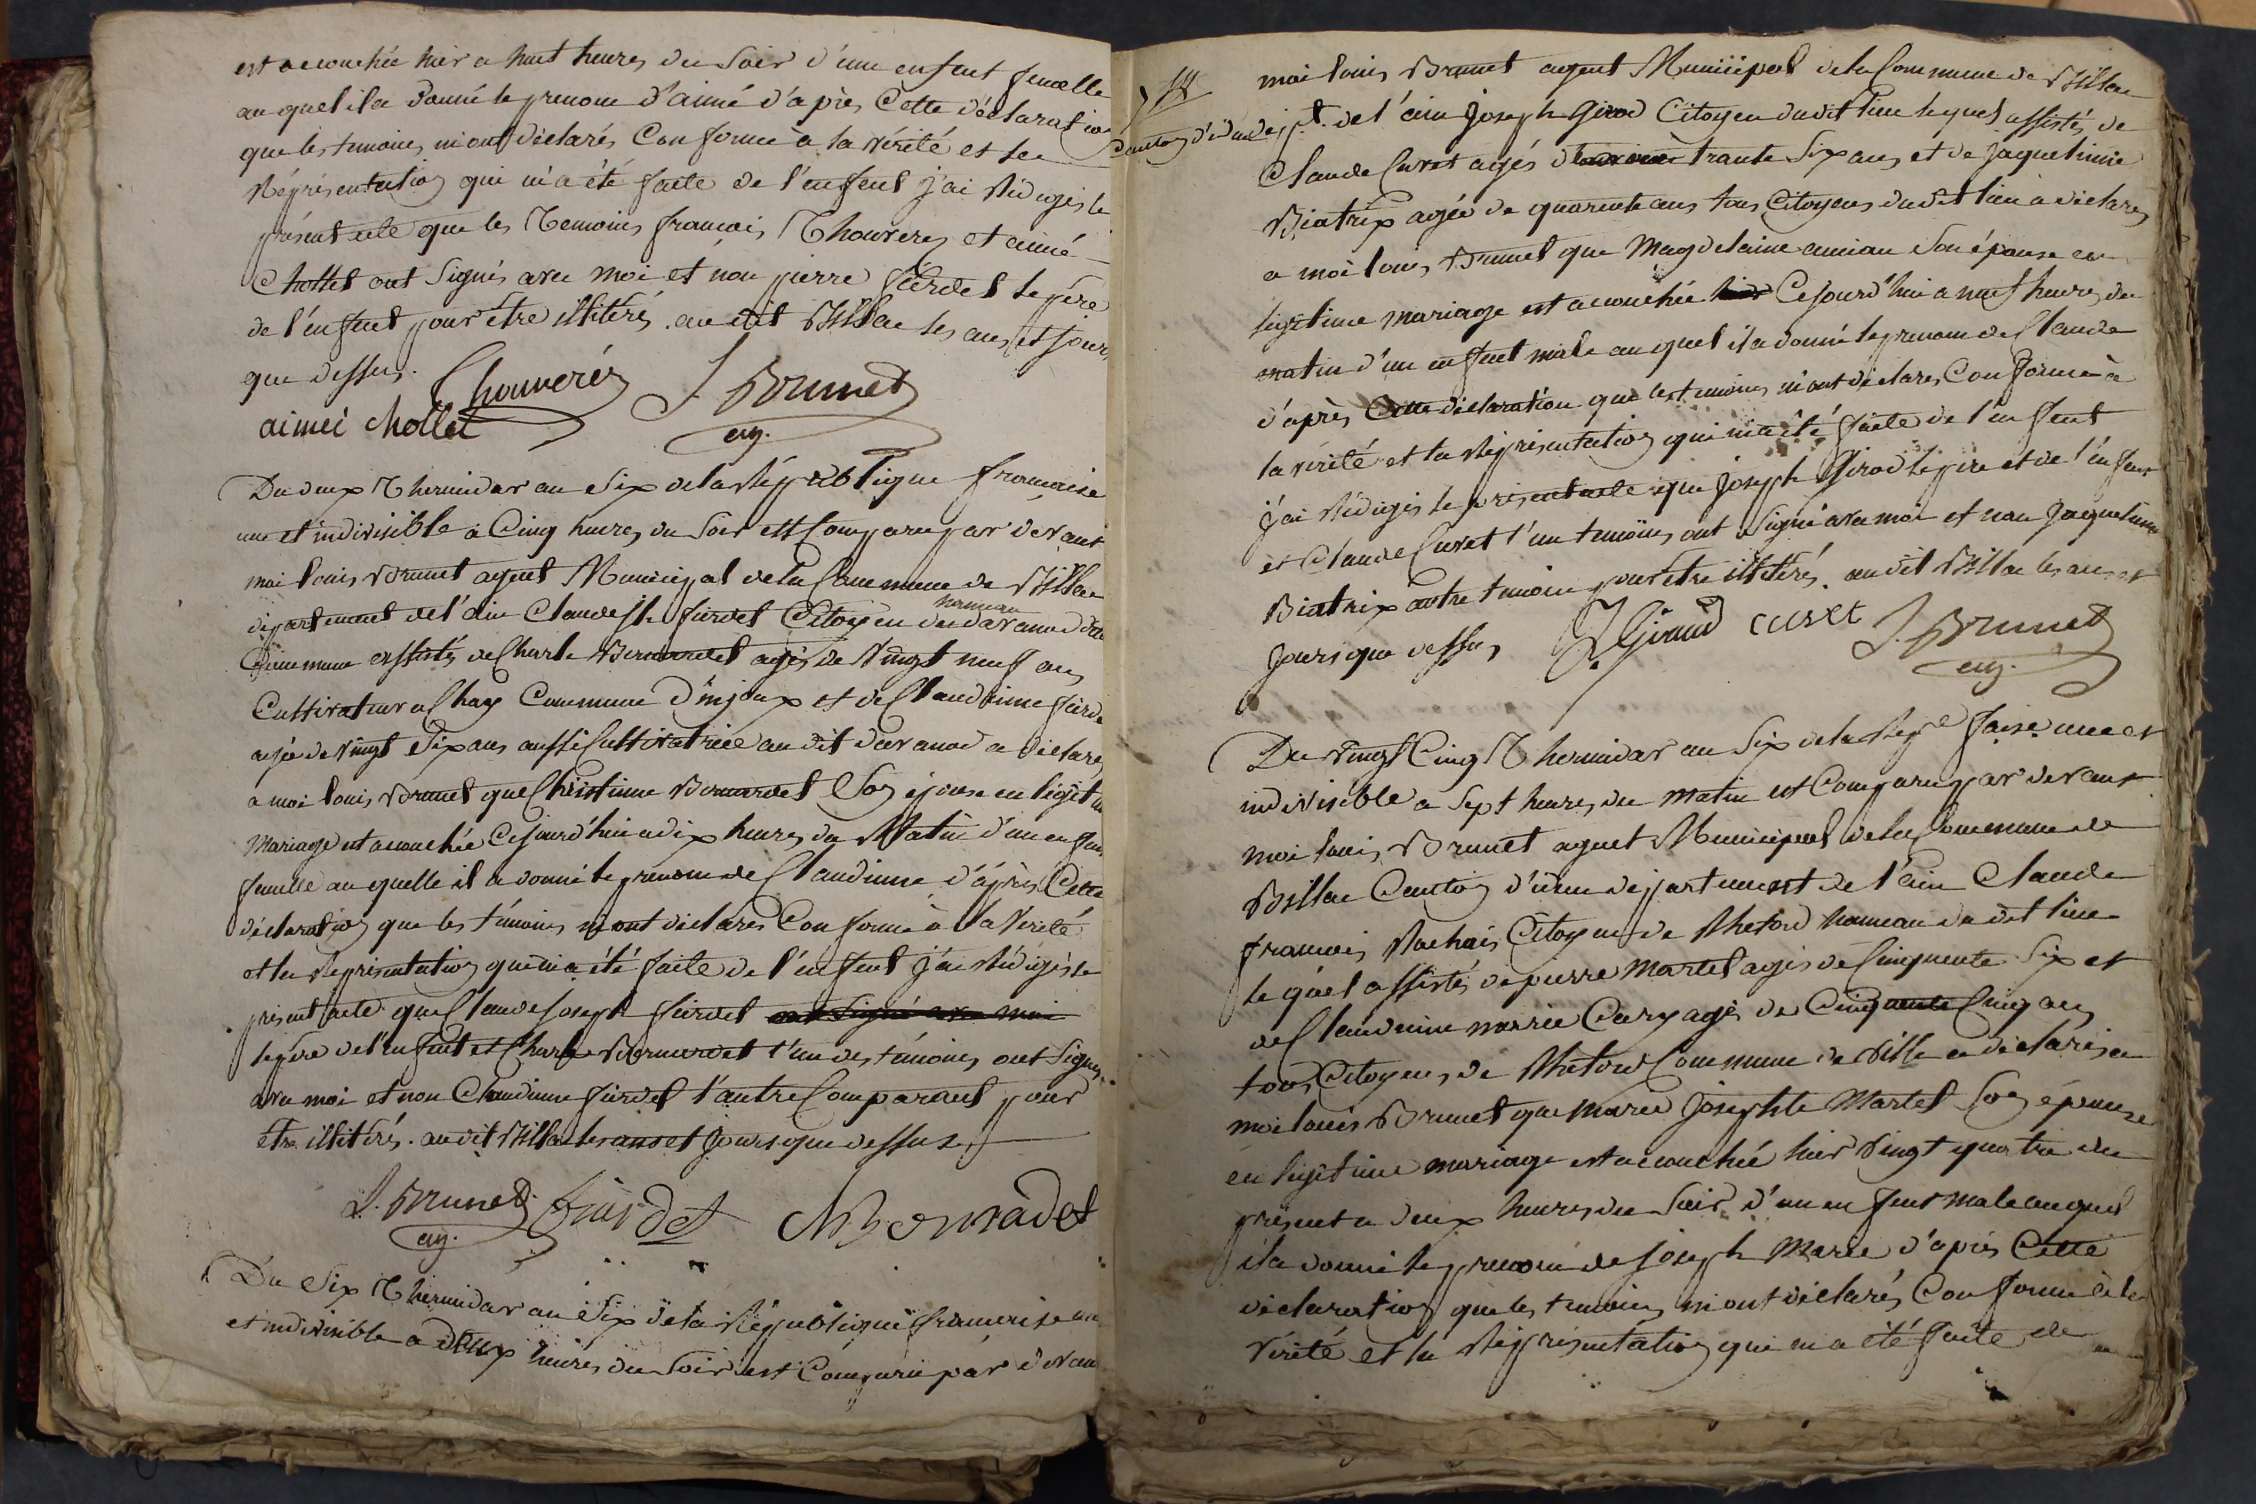 est accouchée hier a huit heures du Soir d'une enfent femelle
au quel il a donné le prenom d'aimé d'après Cette déclaration
que les temoins m'ont déclarés Conforme à la vérité et la
Réprésentation qui m'a été faite de l'enfent j'ai Rédigés le
présent acte que les Temoins francois Thouverez et aimé
Chollet ont Signés avec moi et non pierre fierdet le père
de l'enfent pour être illitérés. au dit Billac les ans et jours
que dessus.
Thouverez J Brunet
aimei chollet ag.
Du deux Thermidor an Six de la République francaise
une et indivisible à Cinq heures du Soir est Comparu par devant
moi louis Brunet agent Municipal de la Commune de
département de l'ain Claude Jh fierdet Citoyen du davanod
hameau
Commune assistés de Charle Bernardet agés de Vingt neuf ans
Cultivateur a Chay Commune d'injoux et de Claudinne fierde
agée de Vingt Six ans aussi Cultivatrice au dit davanod a déclarés
a moi louis Brunet que Christinne Bernardet Son épouse en légit
Mariage est accouchée Cejourd'hui a dix heures du Matin d'un enfent
femelle au quelle il a donné le prenom de Claudinne d'après Cette
déclaration que les témoins m'ont déclarés Conforme à la Verité
et la Représentation qui m'a été faite de l'enfent j'ai Rédigés le
présent acte que Claude Joseph fierdet ont Signé avec moi
le père de l'enfent et Charle Bernardet l'un des témoins ont Signés
avec moi et non Claudinne fierdet l'autre Comparant pour
être illitérés. au dit Billac les ans et jours que dessus.
L. Brunet fiardet Ch Bernadet
ag.
Du Six Thermidor an Six de la République francaise une
et indivisible a deux heures du Soir est Comparu par devan
moi louis Brunet agent Municipal de la Commune de
Canton d'
dept. de l'ain Joseph Girod Citoyen dudit lieu lequel assistés de
Claude Curet agés de trante Six ans et de Jaquelinne
Biatrix agée de quarente ans tous Citoyens du dit lieu a déclarés
a moi louis Brunet que Magdelaine Son épouse en
legitime mariage est accouchée hier Cejourd'hui a neuf heures du
matin d'un enfent male au quel il a donné le prenom de Claude
d'après Cette déclaration que les temoins m'ont déclarés Conforme à
la vérité et la Représentation qui m'a été faite de l'enfent
j'ai Rédigés le present acte que Joseph Girod le père et de l'enfent
et Claude Curet l'un temoins ont Signé avec moi et non Jaquelinne
Biatrix autre temoin pour être illitérés. au dit Billac les ans et
jours que dessus J Giraud curet J. Brunet
ag.
Du Vingt Cinq Thermidor an Six de la Repe. faise. une et
indivisible a Sept heures du matin est Comparu par devant
moi louis Brunet agent Municipal de la Commune de
Billac Canton d' departement de l'ain Claude
francois Rachais Citoyen de Rhetord hameau du dit lieu
le quel assistés de pierre Martel agés de Cinquente Six et
de Claudinne marie Cary agés de Cinquente Cinq ans
tous Citoyens de Rhetord Commune de Bille a déclarés a
moi louis Brunet que marie Josephte Martel Son épouse
en legitime mariage est accouchée hier Vingt quatre du
présent a deux heures du Soir d'un enfent male au quel
il a donné le prenom de joseph Marie d'après Cette
déclaration que les temoins m'ont déclarés Conforme à la
Vérité et la Représentation qui m'a été faite de